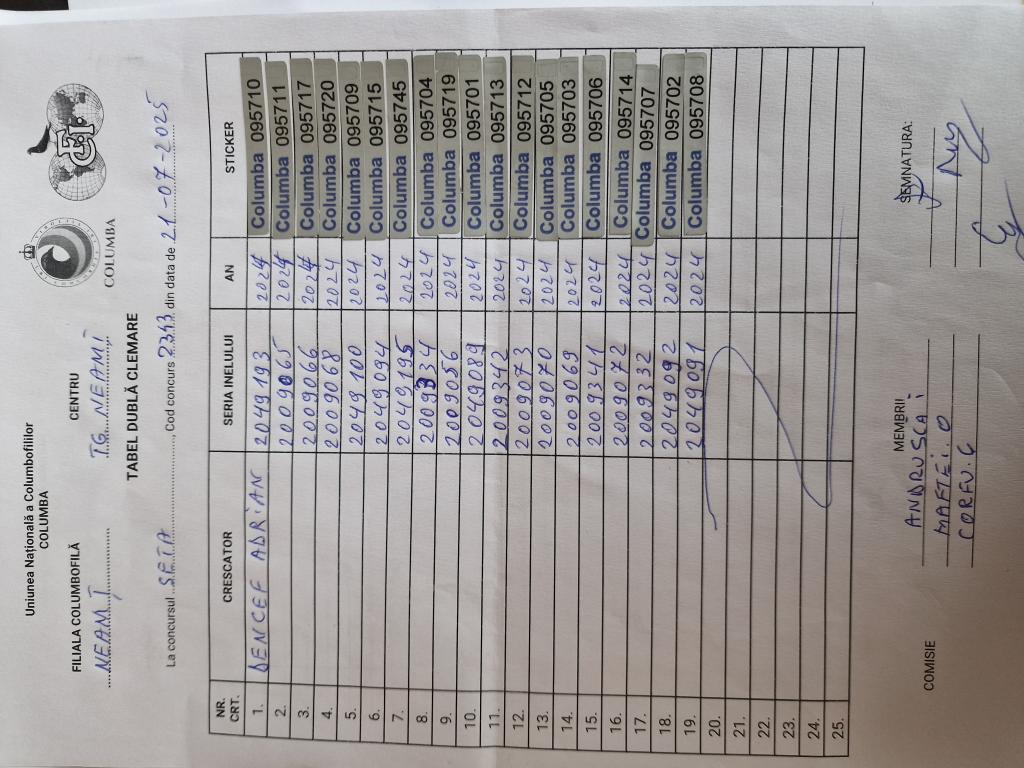 Uniunea Națională a Columbofililor
COLUMBA
FILIALA COLUMBOFILĂ CENTRU
NEAMȚ TG. NEAMȚ
COLUMBA
TABEL DUBLĂ CLEMARE
La concursul SETA, Cod concurs 2343 din data de 21-07-2025
NR. CRT. CRESCATOR SERIA INELULUI AN STICKER
1. DENCEF ADRIAN 2049193 2024 Columba 095710
2. 2009065 2024 Columba 095711
3. 2009066 2024 Columba 095717
4. 2009068 2024 Columba 095720
5. 2049100 2024 Columba 095709
6. 2049094 2024 Columba 095715
7. 2049195 2024 Columba 095745
8. 2009334 2024 Columba 095704
9. 2009056 2024 Columba 095719
10. 2049089 2024 Columba 095701
11. 2009342 2024 Columba 095713
12. 2009073 2024 Columba 095712
13. 2009070 2024 Columba 095705
14. 2009069 2024 Columba 095703
15. 2009341 2024 Columba 095706
16. 2009072 2024 Columba 095714
17. 2009332 2024 Columba 095707
18. 2049092 2024 Columba 095702
19. 2049091 2024 Columba 095708
20.
21.
22.
23.
24.
25.
COMISIE MEMBRII SEMNATURA:
ANDRUSCA i
MAFTEI. O
CORFU. G